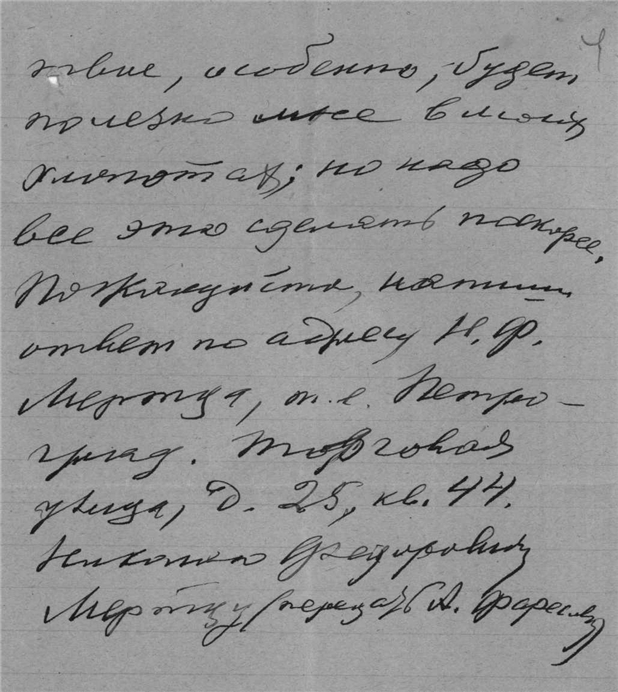 твие, особенно, будет
полезно мне в моих
хлопотах; но надо
все это сделать поскорее.
Пожалуйста, напиши
ответ по адресу Н. Ф.
Мертца, т. е. Петро-
град. Торговая
улица, д. 25, кв. 44.
Николаю Федоровичу
Мертцу (передать А. Фаресову)